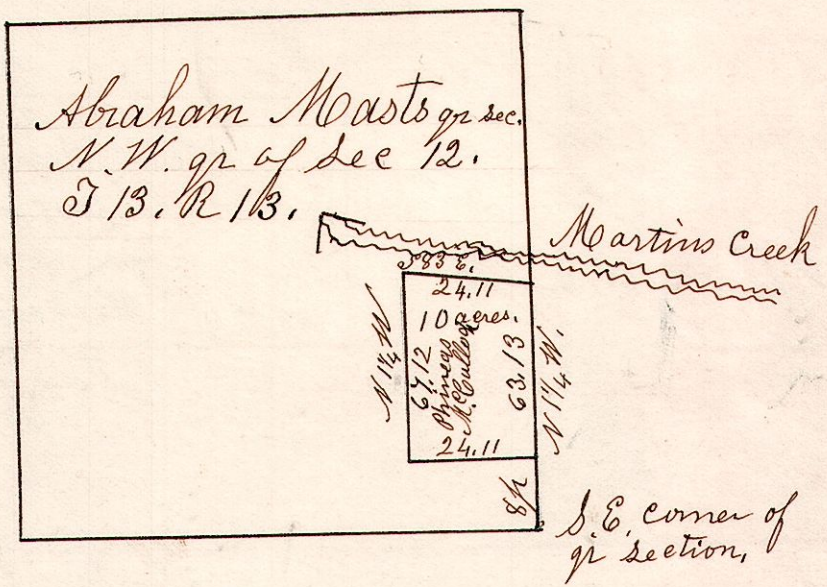 Abraham Masts qr sec.
N. W. qr of Sec 12.
T 13. R 13.
Martins Creek
S 83 E.
24.11
10 acres.
N 1¼ W
67.12
Phineas
McCullog
63.13
N 1¼ W.
24.11
8p
S. E. corner of
qr section,